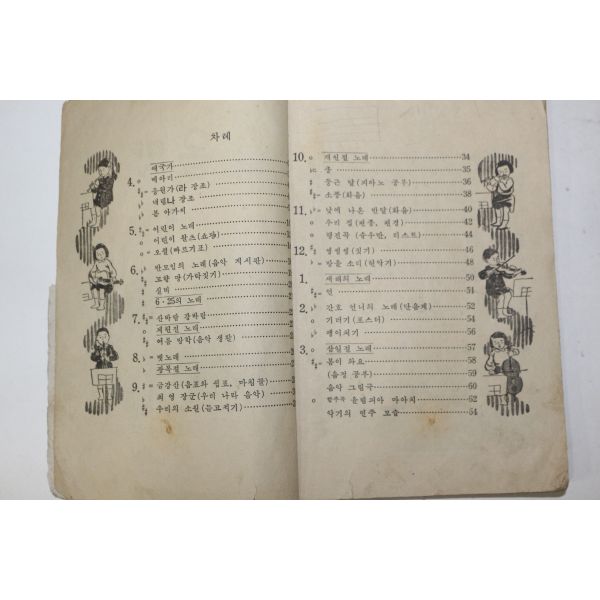 차례
애국가
4. 메아리
응원가(라 장조)
내림나 장조
봄 아가씨
5. 어린이 노래
어린이 왈츠(쇼팽)
오월(바르기포)
6. 반모임의 노래(음악 게시판)
고향 땅(가락짓기)
실비
6·25의 노래
7. 산바람 강바람
제헌절 노래
여름 방학(음악 생활)
8. 뱃노래
광복절 노래
9. 금강산(음표와 쉼표, 마침꼴)
최영 장군(우리 나라 음악)
우리의 소원(듣고적기)
10. 개천절 노래 34
종 35
둥근 달(피아노 공부) 36
소풍(화음) 38
11. 낮에 나온 반달(화음) 40
우리 집(편종, 편경) 42
행진곡 (송우만, 리스트) 44
12. 쌩쌩쌩(짓기) 46
방울 소리(현악기) 48
1. 새해의 노래 50
연 51
2. 간호 언니의 노래(단음계) 52
기러기(포스터) 54
팽이치기 56
3. 삼일절 노래 57
봄이 와요 58
(음정 공부) 59
음악 그림극 60
합주곡 올림피아 마아치 62
악기의 연주 모습 54